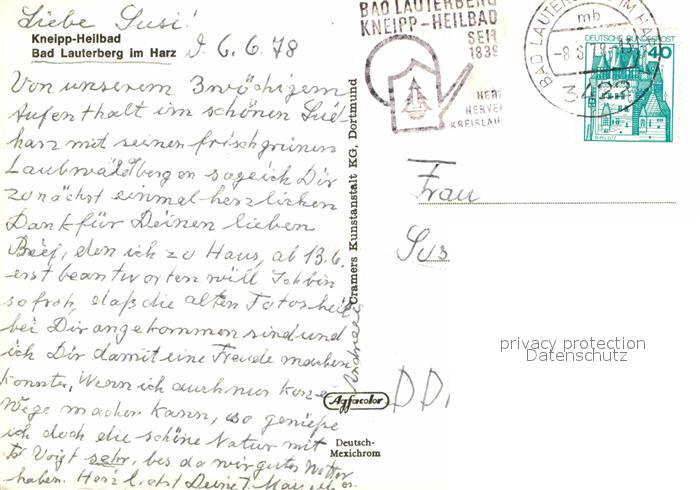 Liebe Susi!
Kneipp-Heilbad
Bad Lauterberg im Harz
D. 6.6.78
Von unserem 3wöchigem
Aufenthalt im schönen Süd-
harz mit seinen frischgrünen
Laubwäldbergen sage ich Dir
zunächst einmal herzlichen
Dank für Deinen lieben
Brief, den ich zu Haus, ab 13.6.
erst beantworten will Ich bin
so froh, daß die alten Fotos heil
bei Dir angekommen sind und
ich Dir damit eine Freude machen
konnte. Wenn ich auch nur kurze
Wege machen kann, so genieße
ich doch die schöne Natur mit
Voigt sehr, bes. da wir gutes Wetter
haben. Herzlichst Deine
Cramers Kunstanstalt KG, Dortmund
Agfacolor
Deutsch-
Mexichrom
BAD LAUTERBERG
KNEIPP-HEILBAD
SEIT
1839
HERZ
NERVEN
KREISLAUF
BAD LAUTERBERG IM HARZ
mb
3422
DEUTSCHE BUNDESPOST
40
BURG ELTZ
Frau
Sus
DD
privacy protection
Datenschutz